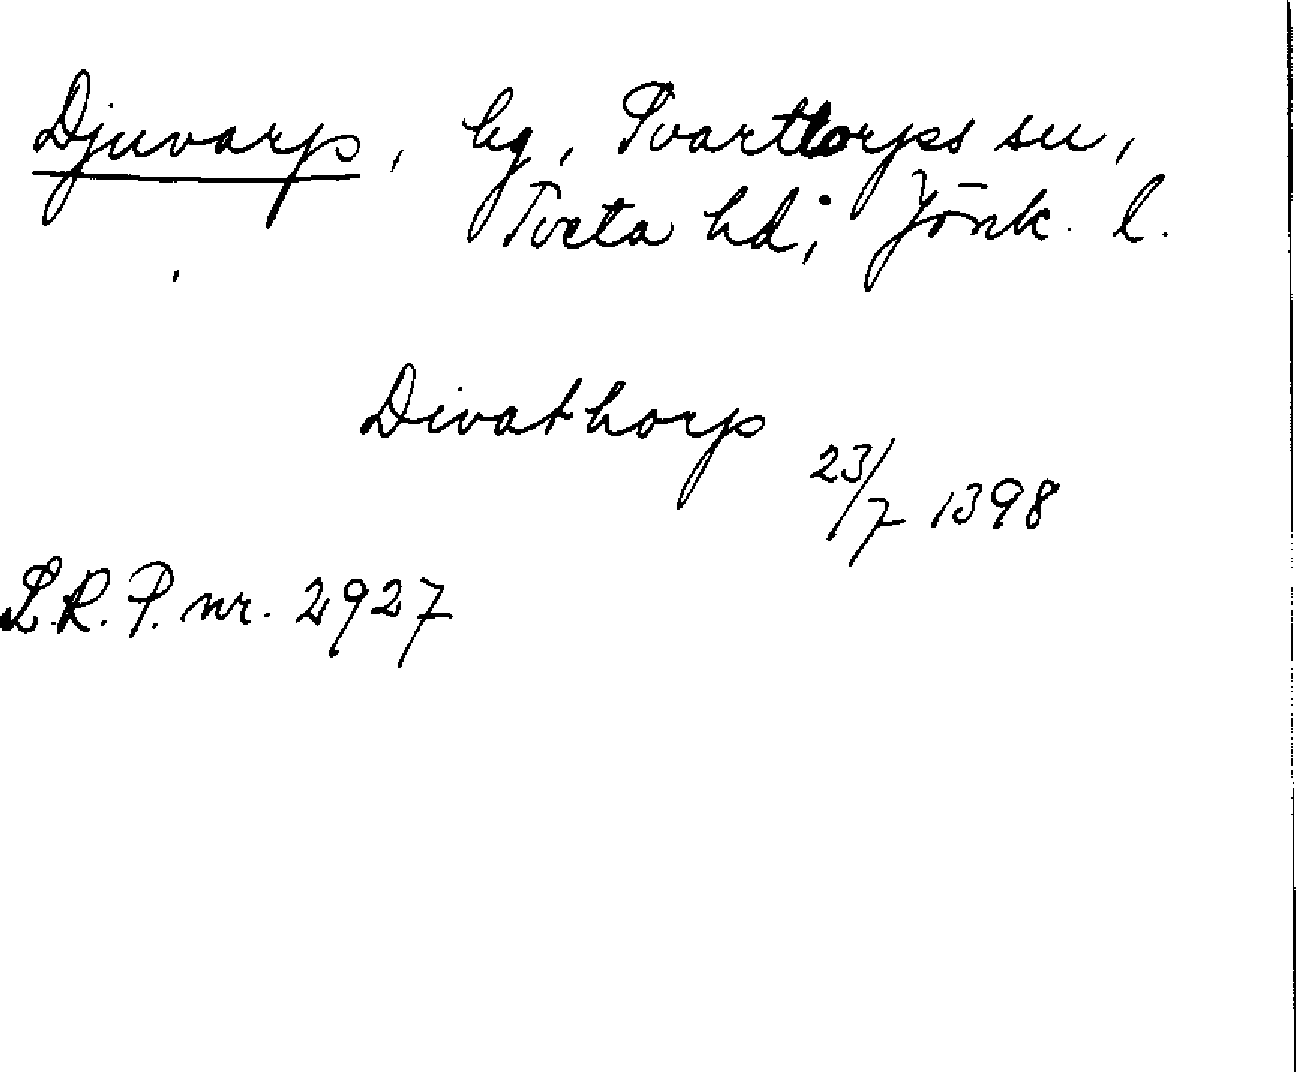 Djuvarp, hg, Svarttorps sn,
Tveta hd, Jönk. l.
Divathorp
23/7 1398
S.R.P. nr. 2927